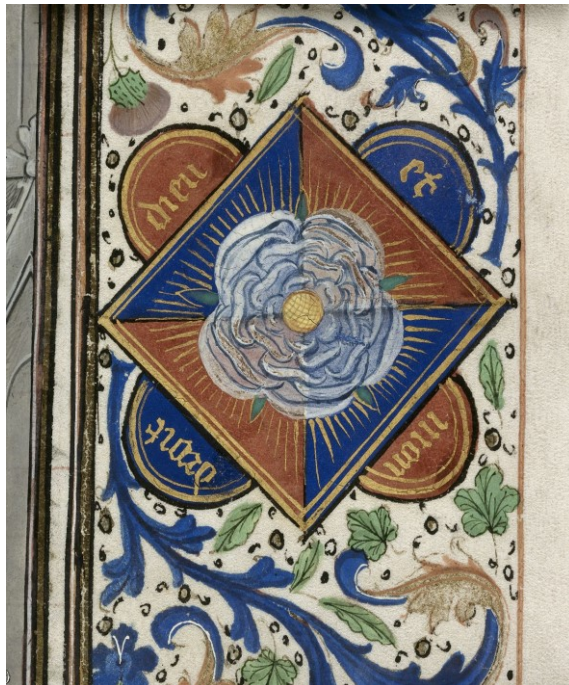 dieu
et
mon
droit